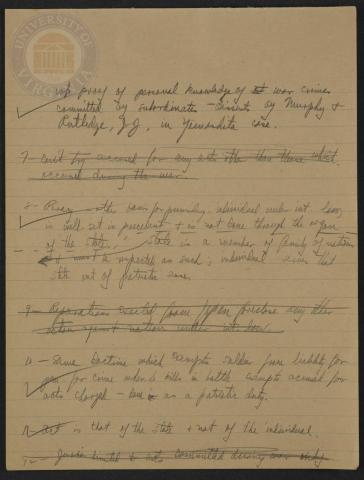 UNIVERSITY OF VIRGINIA
w/o proof of personal knowledge of war crimes
committed by subordinates - dissents of Murphy &
Rutledge, J.J., in Yamashita case.
7 - Can't try accused for any acts other than those which
occurred during the war.
8 - other basis for punishing individual under int. law
is well set in precedent & is not done through the organ
of the state. State is a member of family of nations
& must be respected as such; individual
act out of patriotic
9 - Reparations from Japan foreclose any other
action against nations under int. law.
10 - Same doctrine which exempts soldier from liability for
for crime when he kills in battle exempts accused for
acts charged - as a patriotic duty.
11 - Act is that of the state & not of the individual.
12 - limited to acts committed during war